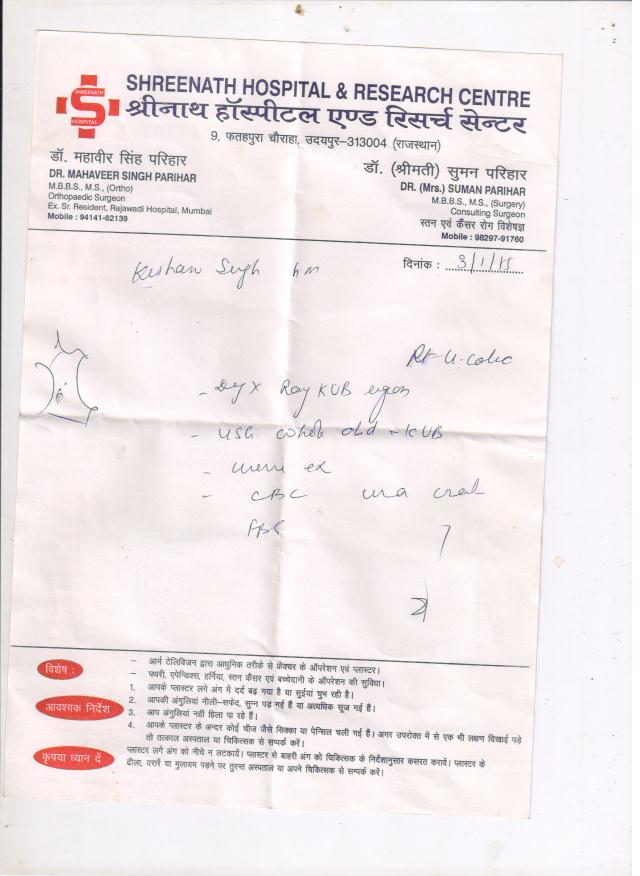 SHREENATH
S
HOSPITAL
SHREENATH HOSPITAL & RESEARCH CENTRE
श्रीनाथ हॉस्पीटल एण्ड रिसर्च सेन्टर
9, फतहपुरा चौराहा, उदयपुर–313004 (राजस्थान)
डॉ. महावीर सिंह परिहार
DR. MAHAVEER SINGH PARIHAR
M.B.B.S., M.S., (Ortho)
Orthopaedic Surgeon
Ex. Sr. Resident, Rajawadi Hospital, Mumbai
Mobile : 94141-62139
डॉ. (श्रीमती) सुमन परिहार
DR. (Mrs.) SUMAN PARIHAR
M.B.B.S., M.S., (Surgery)
Consulting Surgeon
स्तन एवं कैंसर रोग विशेषज्ञ
Mobile : 98297-91760
दिनांक : 3/1/15
Kishan Singh
Rt U. colic
- X Ray KUB
- USG whole abd - KUB
- ex
- CBC
FBS
विशेष :
– आर्म टेलिविजन द्वारा आधुनिक तरीके से फ्रेक्चर के ऑपरेशन एवं प्लास्टर।
– पथरी, एपेन्डिक्स, हर्निया, स्तन कैंसर एवं बच्चेदानी के ऑपरेशन की सुविधा।
आवश्यक निर्देश
1. आपके प्लास्टर लगे अंग में दर्द बढ़ गया है या सुईयां चुभ रही है।
2. आपकी अंगुलियां नीली-सफेद, सुन्न पड़ गई हैं या अत्यधिक सूज गई हैं।
3. आप अंगुलियां नहीं हिला पा रहे हैं।
4. आपके प्लास्टर के अन्दर कोई चीज जैसे सिक्का या पेन्सिल चली गई हैं। अगर उपरोक्त में से एक भी लक्षण दिखाई पड़े
तो तत्काल अस्पताल या चिकित्सक से सम्पर्क करें।
कृपया ध्यान दें
प्लास्टर लगे अंग को नीचे न लटकायें। प्लास्टर से बाहरी अंग को चिकित्सक के निर्देशानुसार कसरत करायें। प्लास्टर के
ढीला, दरारें या मुलायम पड़ने पर तुरन्त अस्पताल या अपने चिकित्सक से सम्पर्क करें।